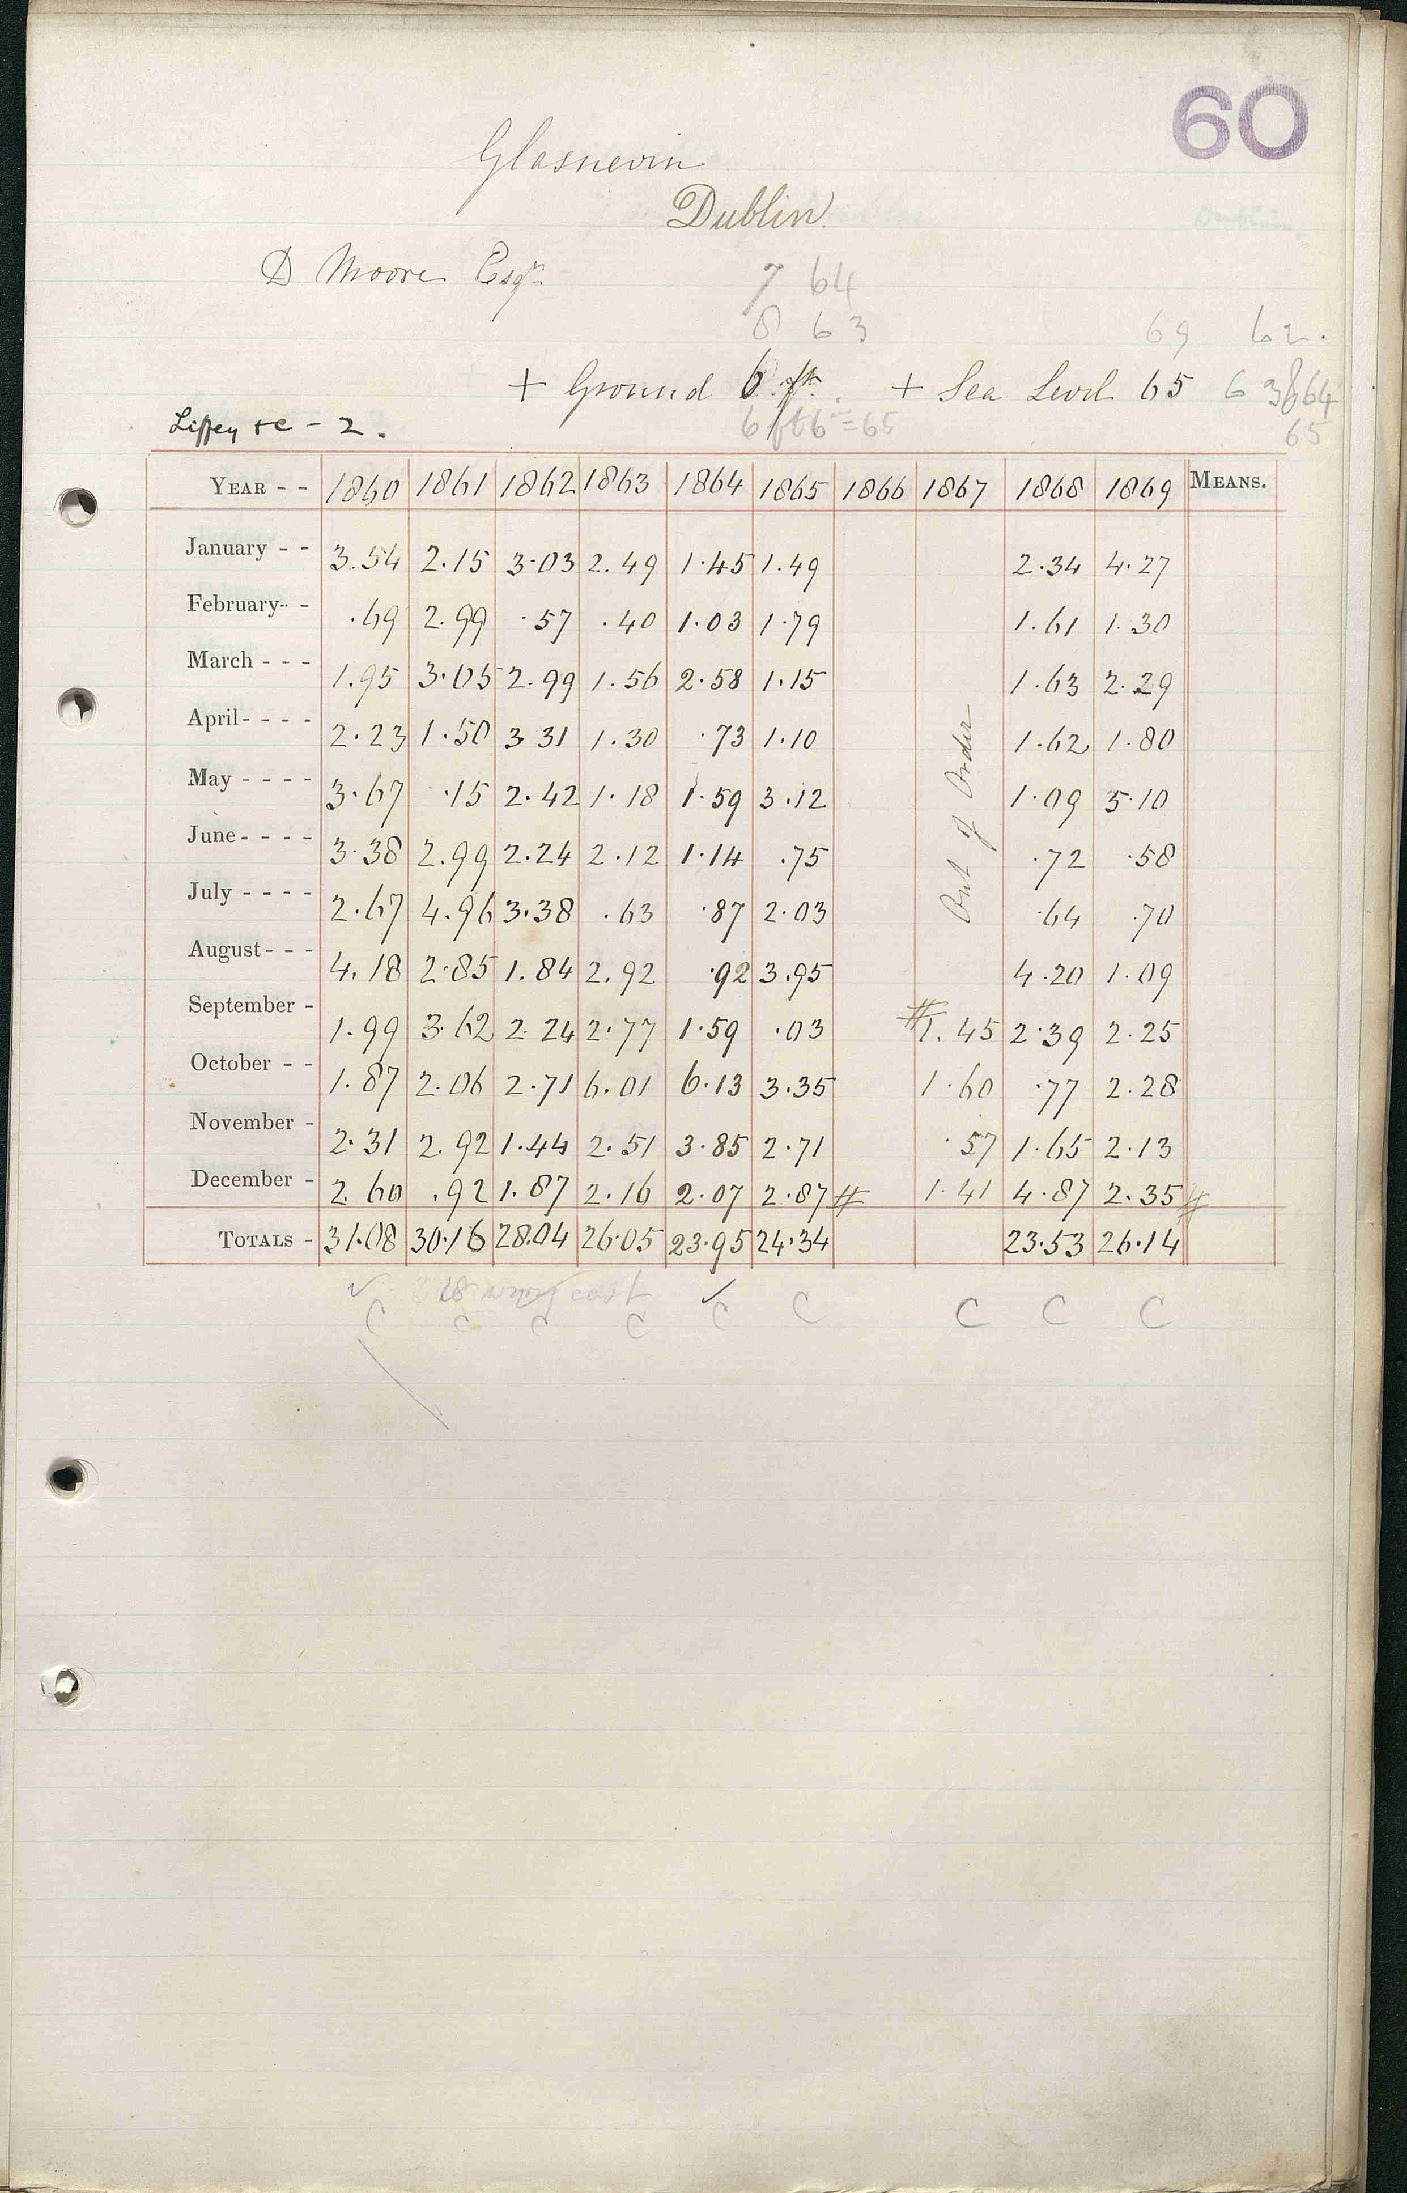 60
Glasnevin
Dublin
D Moore Esqr
7 64
8 63 69 62.
+ Ground 6 ft. + Sea Level 65 6 3 64
Liffey &c - 2. 6 ft 6 in = 65 65
YEAR - - 1860 1861 1862 1863 1864 1865 1866 1867 1868 1869 MEANS.
January - - 3.54 2.15 3.03 2.49 1.45 1.49 2.34 4.27
February - - .69 2.99 .57 .40 1.03 1.79 1.61 1.30
March - - - 1.95 3.05 2.99 1.56 2.58 1.15 1.63 2.29
April - - - - 2.23 1.50 3 31 1.30 .73 1.10 1.62 1.80
May - - - - 3.67 .15 2.42 1.18 1.59 3.12 1.09 5.10
June - - - - 3.38 2.99 2.24 2.12 1.14 .75 Out of Order .72 .58
July - - - - 2.67 4.96 3.38 .63 .87 2.03 .64 .70
August - - - 4.18 2.85 1.84 2.92 .92 3.95 4.20 1.09
September - 1.99 3.62 2.24 2.77 1.59 .03 #1.45 2.39 2.25
October - - 1.87 2.06 2.71 6.01 6.13 3.35 1.60 .77 2.28
November - 2.31 2.92 1.44 2.51 3.85 2.71 .57 1.65 2.13
December - 2.60 .92 1.87 2.16 2.07 2.87 # 1.41 4.87 2.35 #
TOTALS - 31.08 30.16 28.04 26.05 23.95 24.34 23.53 26.14
✓ ✓
C C C C C C C C C